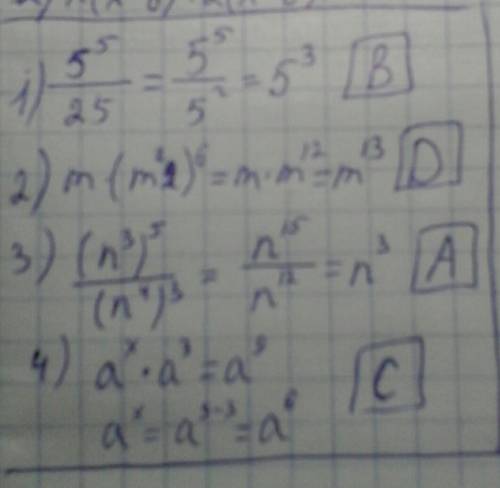 1) 5⁵/25 = 5⁵/5² = 5³ B
2) m·(m²)⁶ = m·m¹² = m¹³ D
3) (n³)⁵/(n⁴)³ = n¹⁵/n¹² = n³ A
4) aˣ·a³ = a⁹ C
aˣ = a⁹⁻³ = a⁶